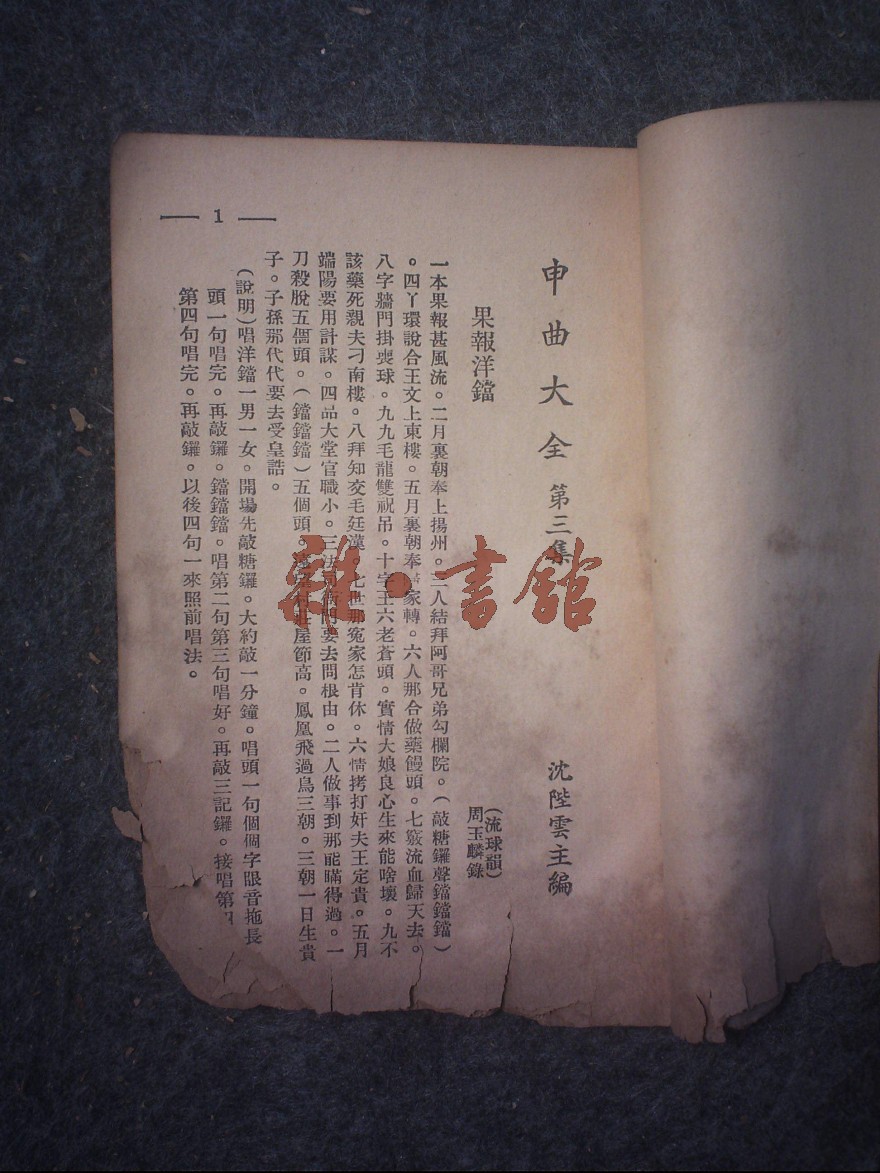 申曲大全 第三集
沈陛雲主編
果報洋鐺
(流球韻)
周玉麟錄
一本果報甚風流。二月裏朝奉上揚州。三人結拜阿哥兄弟勾欄院。(敲糖鑼聲鐺鐺鐺)
。四丫環說合王文上東樓。五月裏朝奉 家轉。六人那合做藥饅頭。七竅流血歸天去。
八字牆門掛喪球。九九毛龍雙祝吊。十字王六老蒼頭。實情大娘良心生來能啥壞。九不
該藥死親夫刁南樓。八拜知交毛廷漢。七世那冤家怎肯休。六情拷打奸夫王定貴。五月
端陽要用計謀。四品大堂官職小。三法司衙門要去問根由。二人做事到那能瞞得過。一
刀殺脫五個頭。(鐺鐺鐺)五個頭。 村莊屋節高。鳳凰飛過鳥三朝。三朝一日生貴
子。子孫那代代要去受皇誥。
(說明)唱洋鐺一男一女。開場先敲糖鑼。大約敲一分鐘。唱頭一句個個字眼音拖長
頭一句唱完。再敲鑼。鐺鐺鐺。唱第二句第三句唱好。再敲三記鑼。接唱第
第四句唱完。再敲鑼。以後四句一來照前唱法。
1
雜·書館